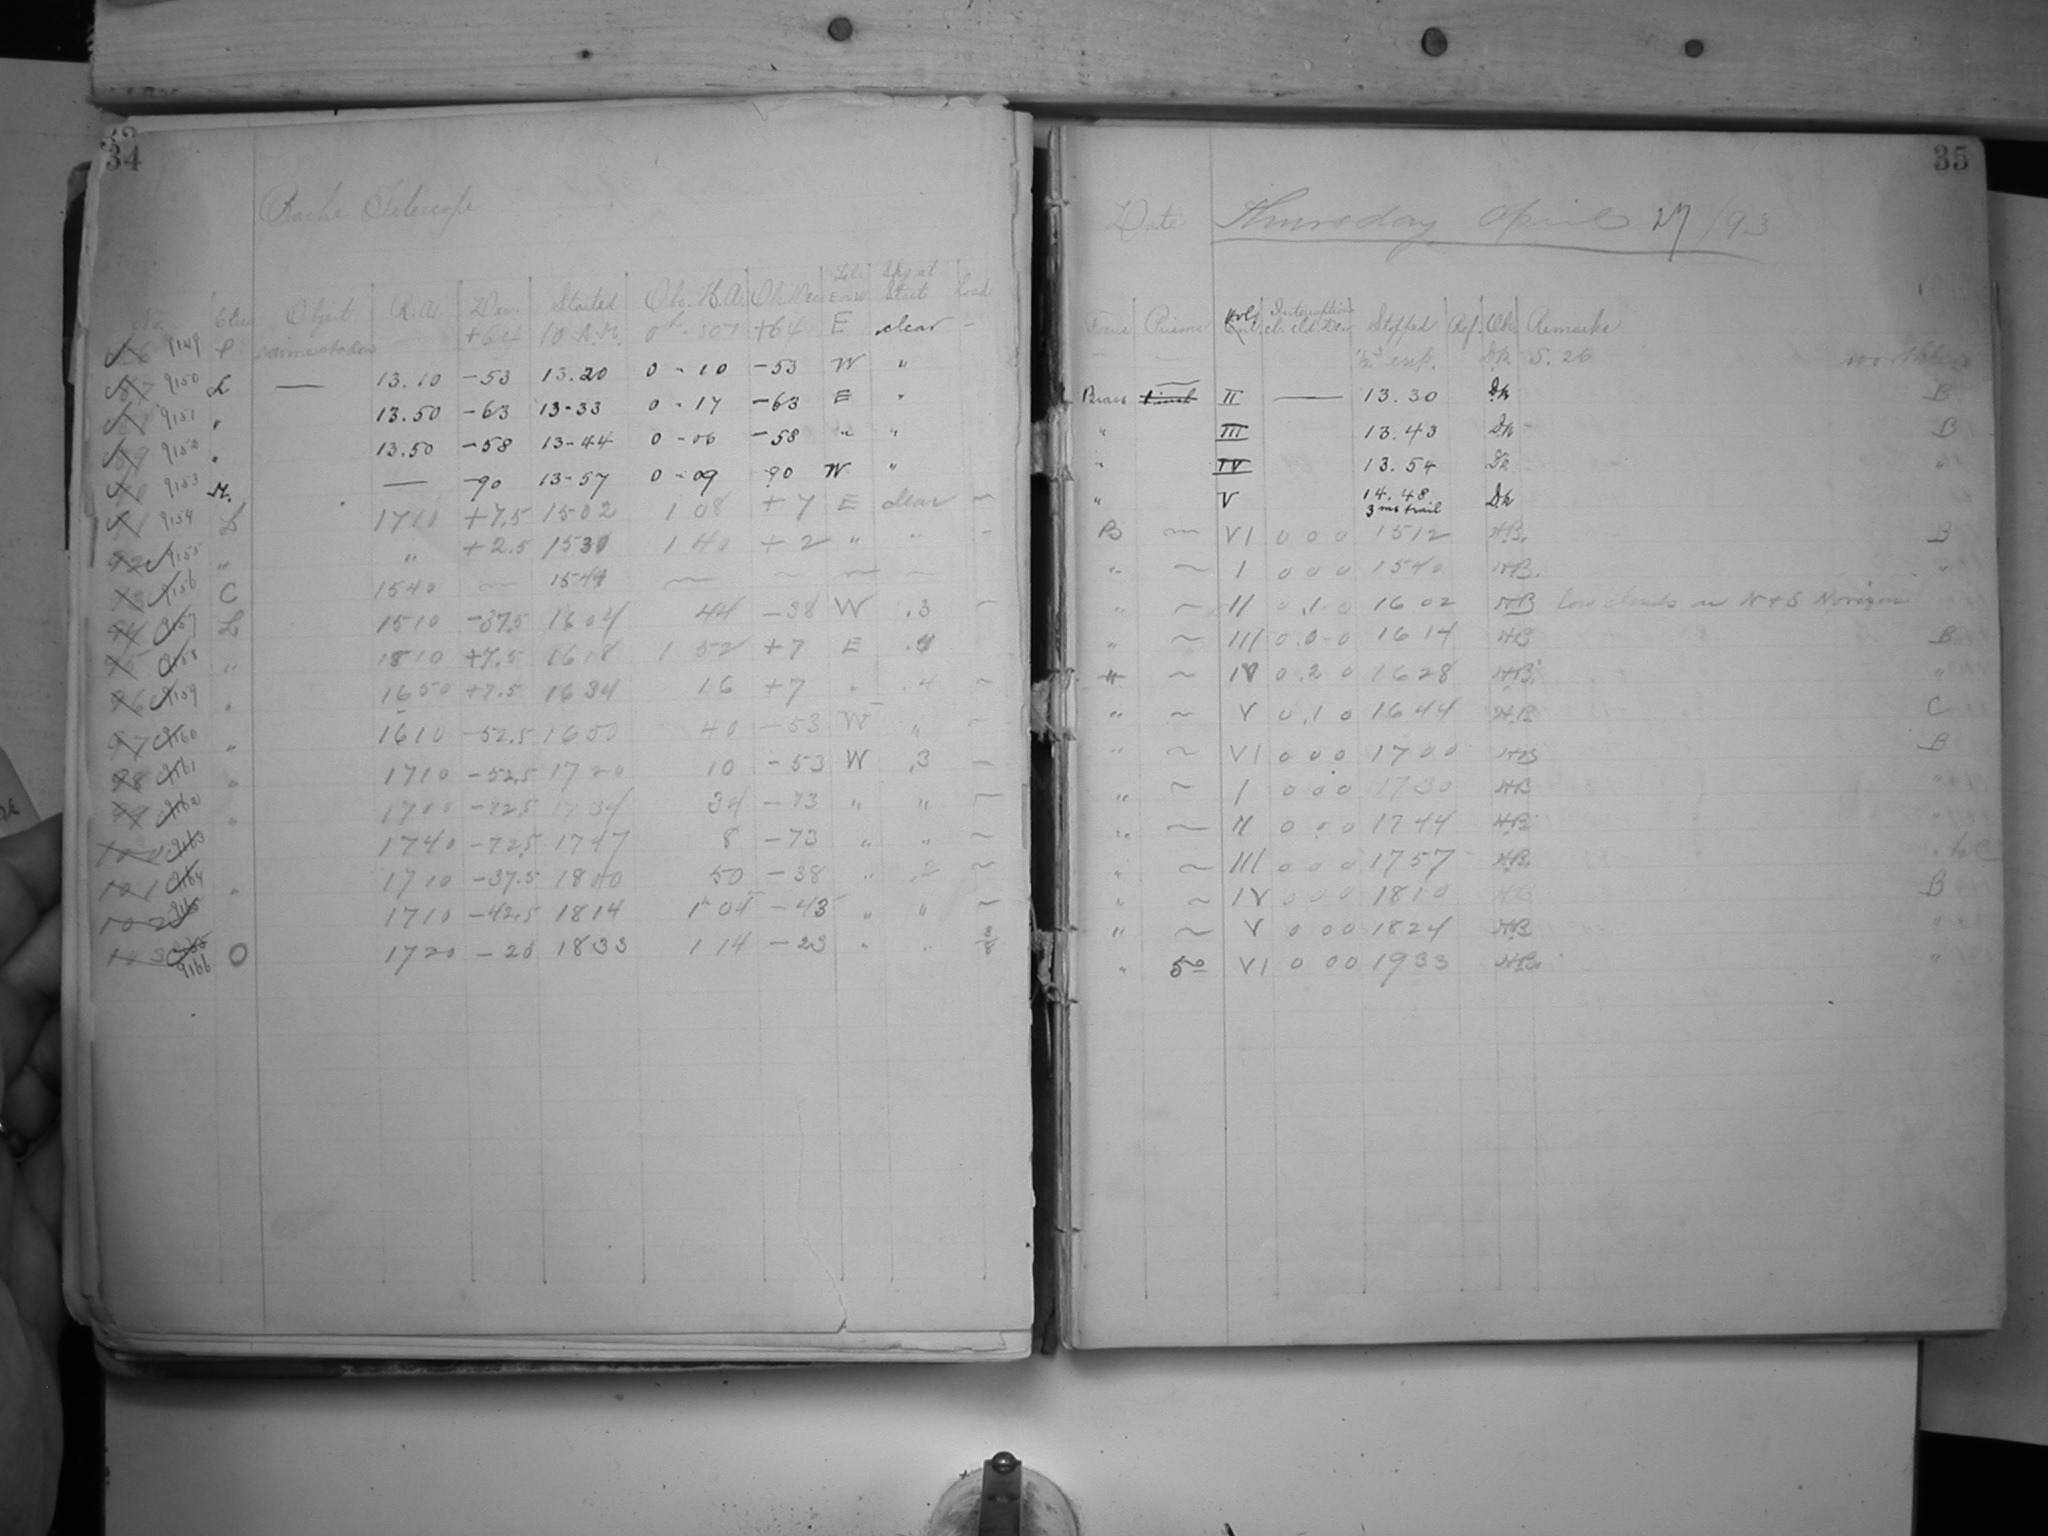 33
34
Bache Telescope
No. Class Object R.A. Dec. Started Ob. H.A. Ob. Dec. Tel. E or W Sky at Start Load
9149 +64 10 A.M. +64 E clear -
87 9150 L — 13.10 -53 13.20 0 - 10 -53 W "
9151 " 13.50 -63 13-33 0 - 17 -63 E "
89 9152 " 13.50 -58 13-44 0 - 06 -58 " "
9153 — -90 13-57 0 - 09 -90 W "
91 9154 L 1710 +7.5 1502 1 08 +7 E clear ~
92 9155 " " +2.5 1530 1 40 +2 " " -
93 9156 C 1540 — 1549 ~ ~ ~ ~
94 9157 L 1510 -37.5 1604 44 -38 W .3 ~
95 9158 " 1810 +7.5 1618 1 52 +7 E .4
96 9159 " 1650 +7.5 1634 16 +7 " .4 ~
97 9160 " 1610 -52.5 1650 40 -53 W " ~
98 9161 " 1710 -52.5 1720 10 -53 W .3 ~
99 9162 " 1700 -72.5 1734 34 -73 " " ~
100 9163 1740 -72.5 1747 8 -73 " " ~
101 9164 " 1710 -37.5 1800 50 -38 " .2 ~
102 9165 1710 -42.5 1814 1h 04 -43 " " ~
103 9166 O 1720 -20 1833 1 14 -23 " " 3/8
35
Date Thursday April 27/93
Focus Prisms Interruptions cl. cld. Dev. Stopped Ref. Ob. Remarks
Dk S. 26
Brass II — 13.30 Dk B
" III 13.43 Dk B
" IV 13.54 Dk "
" V 14.48 3ms trail Dk
B ~ VI 0 0 0 1512 HB. B
" ~ I 0 0 0 1540 HB. "
" ~ II 0 .1 0 1602 HB low clouds on N & S Horizon
" ~ III 0 .0 0 1614 HB B
" ~ IV 0 .2 0 1628 HB. "
" ~ V 0 .1 0 1644 HB C
" ~ VI 0 0 0 1700 HB B
" ~ I 0 0 0 1730 HB "
" ~ II 0 0 0 1744 HB "
" ~ III 0 0 0 1757 HB.
" ~ IV 0 0 0 1810 HB B
" ~ V 0 0 0 1824 HB "
" 5o VI 0 0 0 1933 HB. "